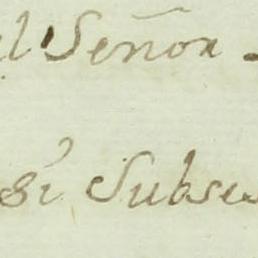 el Señor
si Subse